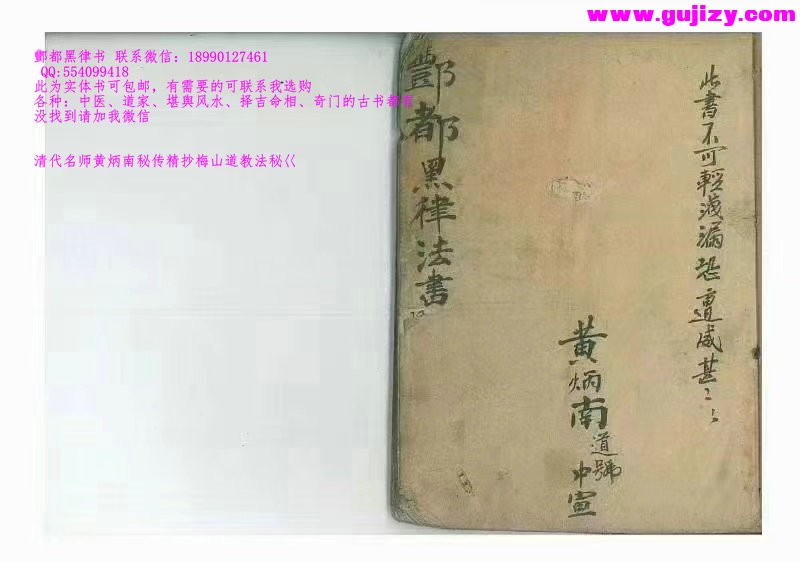 www.gujizy.com
酆都黑律书 联系微信：18990127461
QQ:554099418
此为实体书可包邮，有需要的可联系我选购
各种：中医、道家、堪舆风水、择吉命相、奇门的古书都有
没找到请加我微信
清代名师黄炳南秘传精抄梅山道教法秘巜
此書不可輕洩漏恐遭咸甚〻
黃炳南道號冲宣
酆都黑律法書